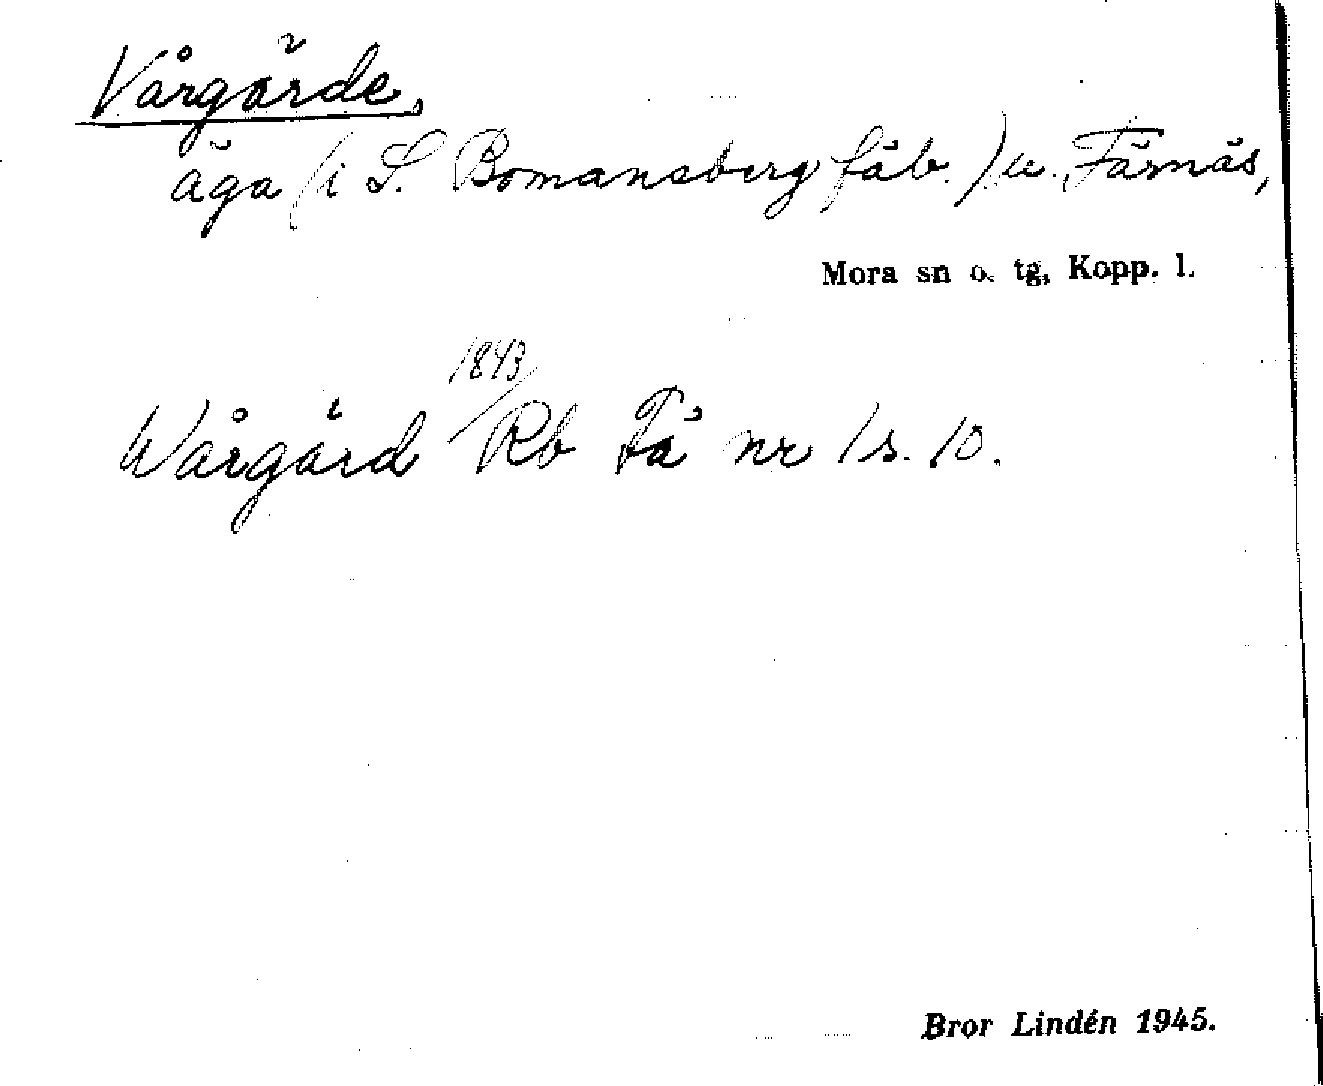 Vårgärde,
äga (i S. Bomansberg fäb.) u. Färnäs,
Mora sn o. tg, Kopp. l.
1843
Wårgärd / Rb Fä nr 1 s. 10.
Bror Lindén 1945.